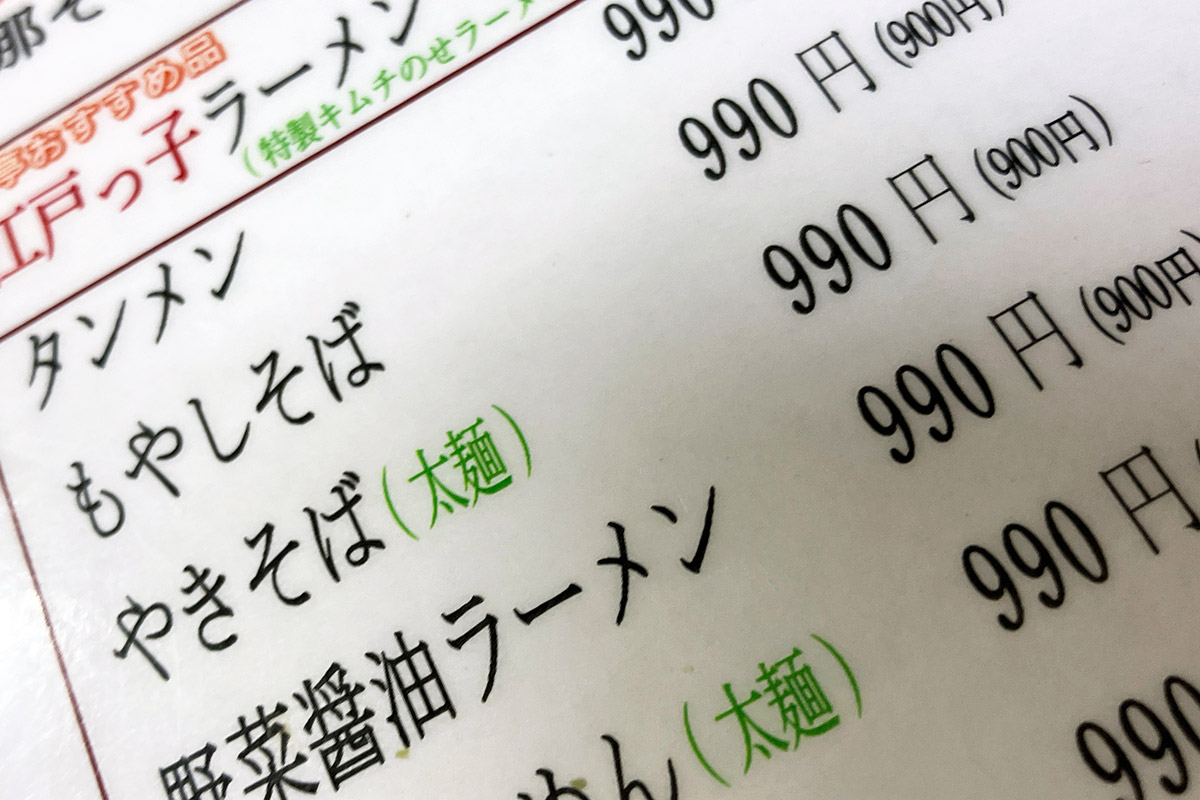 那そ
亭おすすめ品
江戸っ子ラーメン
(特製キムチのせラーメ
タンメン 990
もやしそば 990円(900円)
やきそば(太麺) 990円(900円)
野菜醤油ラーメン 990円(900円
めん(太麺) 990円(
990